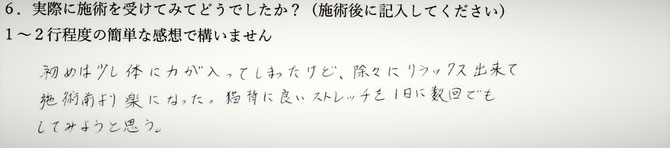 6．実際に施術を受けてみてどうでしたか？（施術後に記入してください）
1～2行程度の簡単な感想で構いません
初めは少し体に力が入ってしまったけど、除々にリラックス出来て
施術前より楽になった。猫背に良いストレッチを1日に数回でも
してみようと思う。